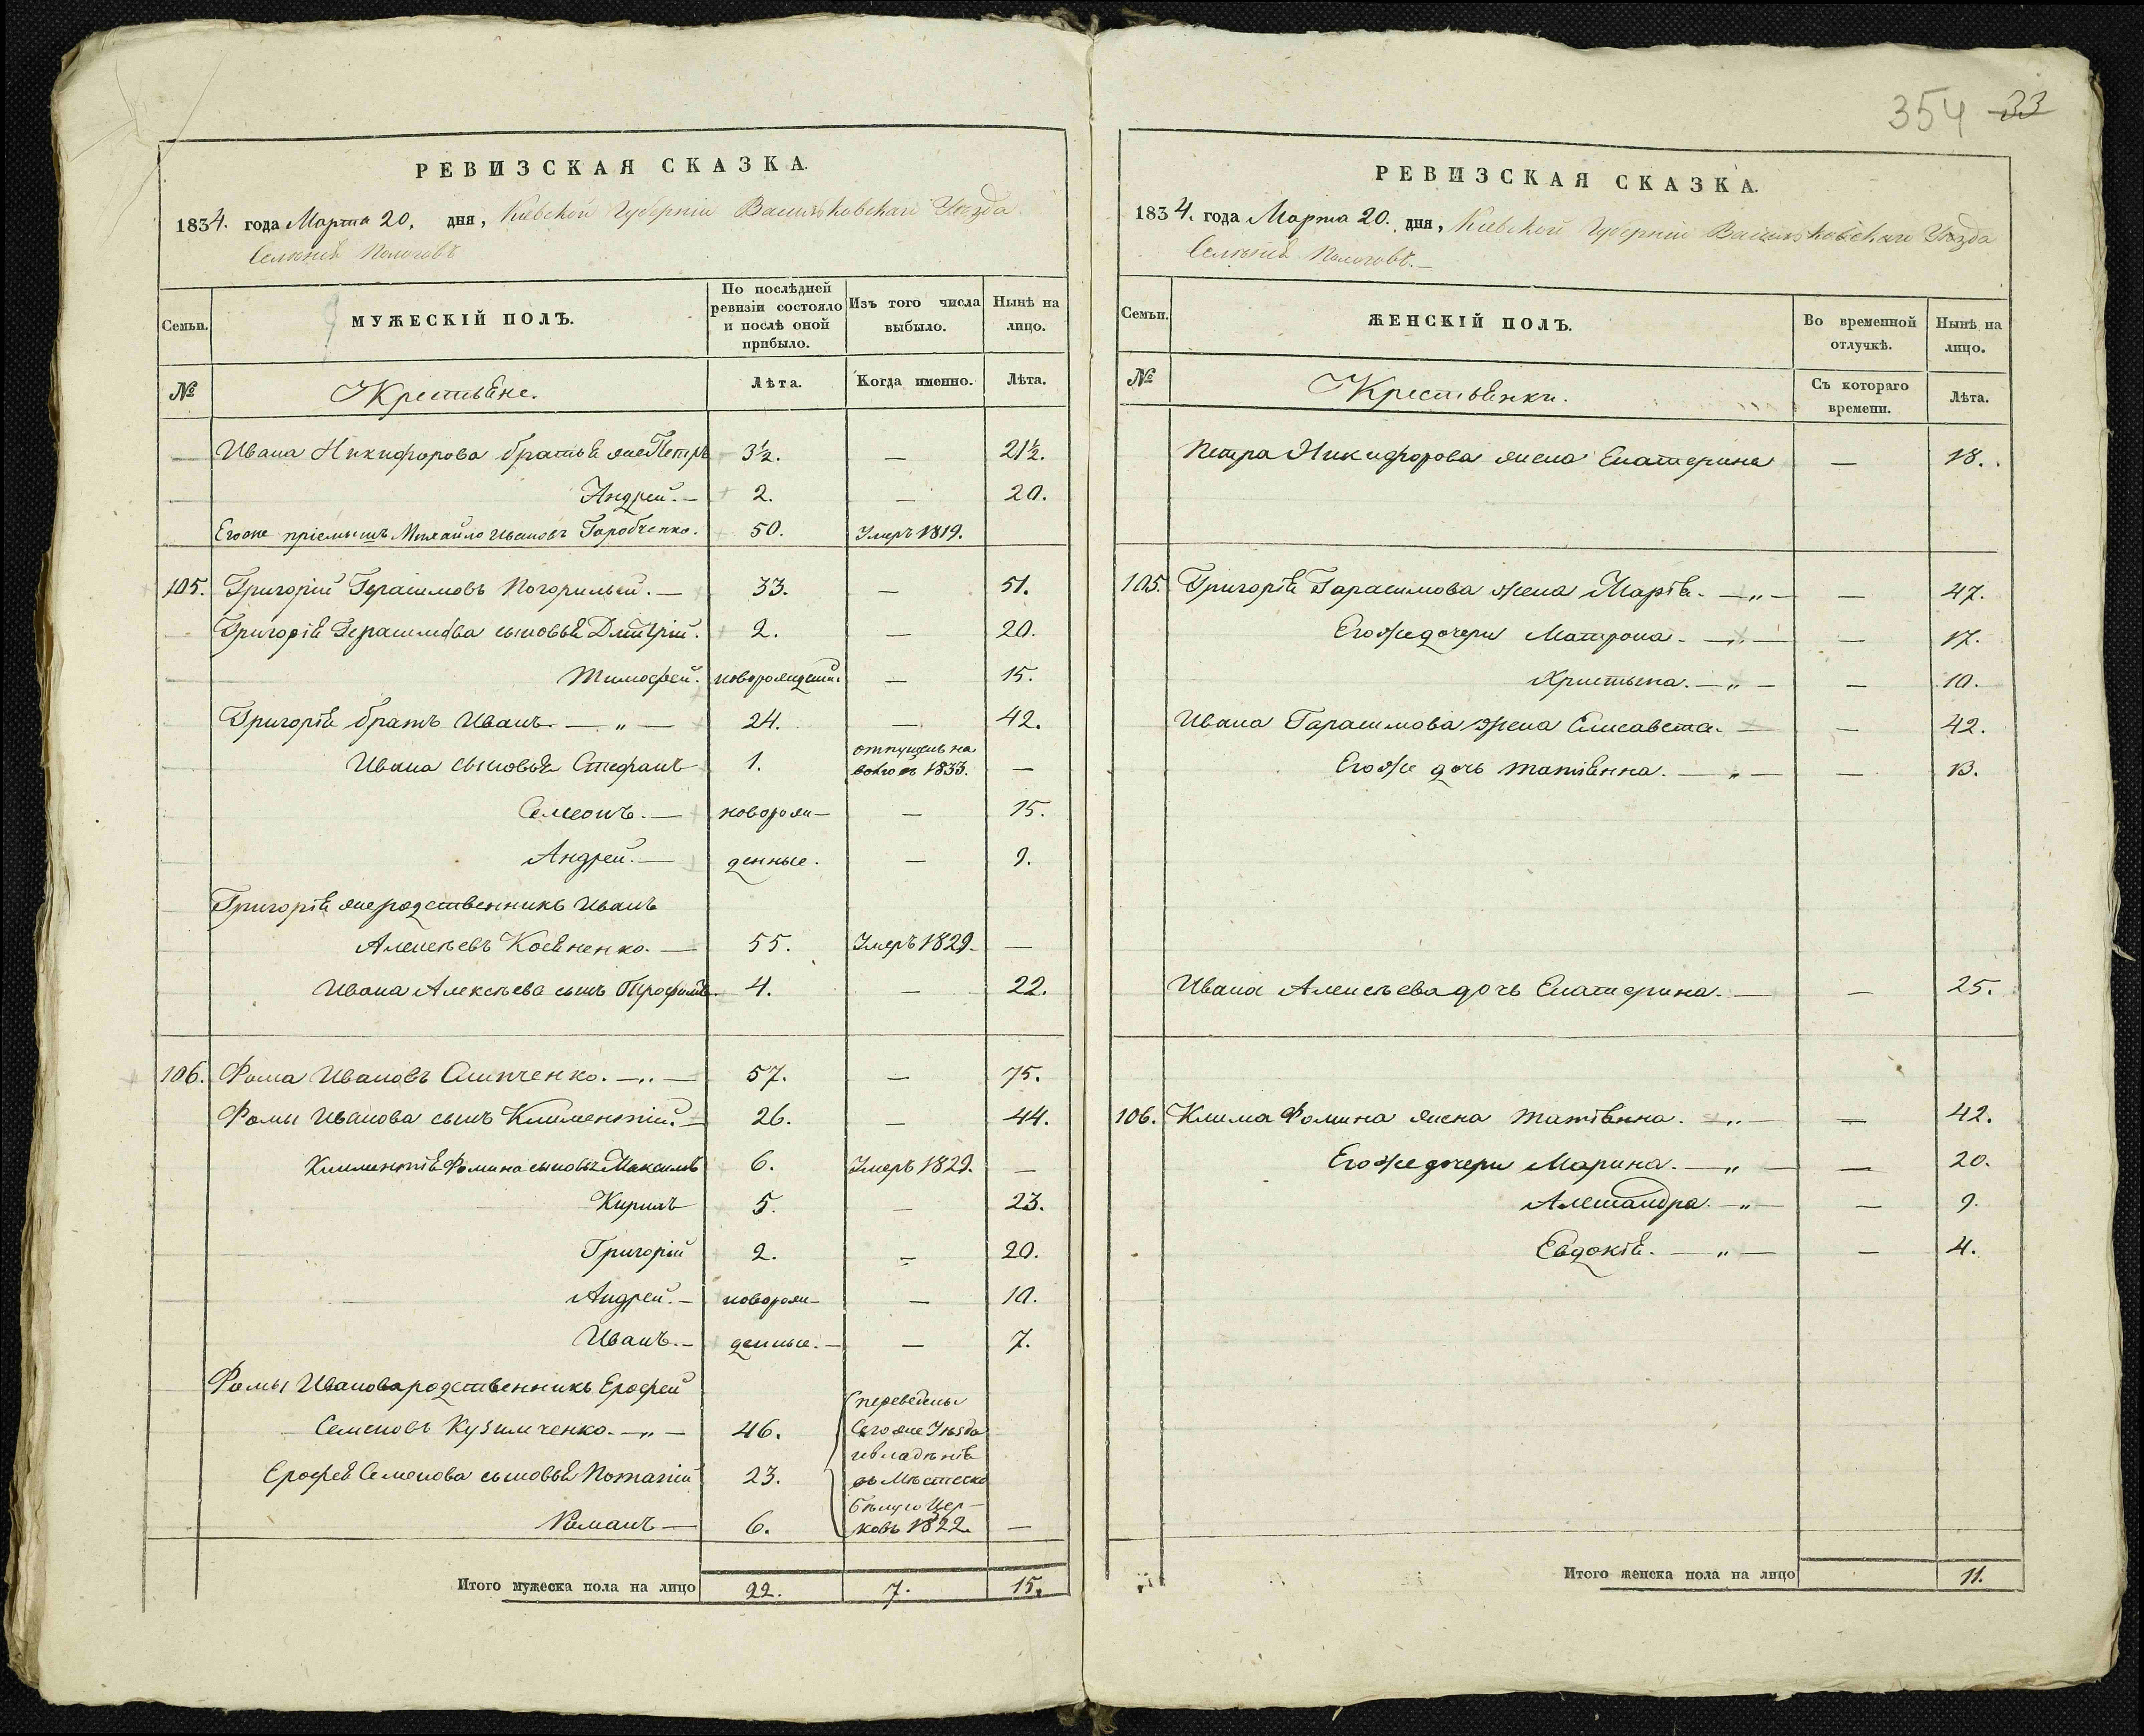 354 33
РЕВИЗСКАЯ СКАЗКА.
1834. года Марта 20. дня, Кіевской Губерніи Васильковскаго Уѣзда
Селенія Пологовъ
Семьи.
МУЖЕСКІЙ ПОЛЪ.
По послѣдней ревизіи состояло и послѣ оной прибыло.
Изъ того числа выбыло.
Нынѣ на лицо.
№
Крестьяне.
Лѣта.
Когда именно.
Лѣта.
— Ивана Никифорова братья же Петръ 3½. — 21½.
Андрей. — 2. — 20.
Егоже пріемышъ Михайло Ивановъ Горобченко. 50. Умеръ 1819.
105. Григорій Герасимовъ Погорилый. — 33. — 51.
Григорія Герасимова сыновья Дмитрій. 2. — 20.
Тимофей. новорожденн. — 15.
Григорія братъ Иванъ. — „ — 24. — 42.
Ивана сыновья Стефанъ 1. отпущенъ на волю въ 1833. —
Семенъ. — новорож— — 15.
Андрей. — денные. — 9.
Григорія же родственникъ Иванъ
Алексѣевъ Косѣненко. — 55. Умеръ 1829. —
Ивана Алексѣева сынъ Трофимъ. 4. — 22.
106. Фома Ивановъ Слипченко. — „ — 57. — 75.
Фомы Иванова сынъ Климентій. — 26. — 44.
Климентія Фомина сыновья Максимъ 6. Умеръ 1829. —
Кирилъ 5. — 23.
Григорій 2. — 20.
Андрей. — новорож— — 10.
Иванъ. — денные. — — 7.
Фомы Иванова родственникъ Ерофей
Семеновъ Кузимченко. — „ — 46.
Ерофея Семенова сыновья Потапій 23.
Романъ — 6. —
переведены
Сегоже Уѣзда
и владѣнія
въ Мѣстечко
Бѣлую Цер—
ковь 1822.
Итого мужеска пола на лицо 22. 7. 15.
РЕВИЗСКАЯ СКАЗКА.
1834. года Марта 20. дня, Кіевской Губерніи Васильковскаго Уѣзда
Селенія Пологовъ. —
Семьи.
ЖЕНСКІЙ ПОЛЪ.
Во временной отлучкѣ.
Нынѣ на лицо.
№
Крестьянки.
Съ котораго времени.
Лѣта.
Петра Никифорова жена Екатерина — 18.
105. Григорія Гарасимова жена Марія. — „ — — 47.
Егоже дочери Матрона. — „ — — 17.
Христина. — „ — — 10.
Ивана Гарасимова жена Елисавета. — — 42.
Егоже дочь Татіянна. — „ — — 13.
Ивана Алексѣева дочь Екатерина. — — 25.
106. Клима Фомина жена Татіянна. — „ — — 42.
Егоже дочери Марина. — „ — — 20.
Александра. — „ — — 9.
Евдокія. — „ — — 4.
Итого женска пола на лицо 11.